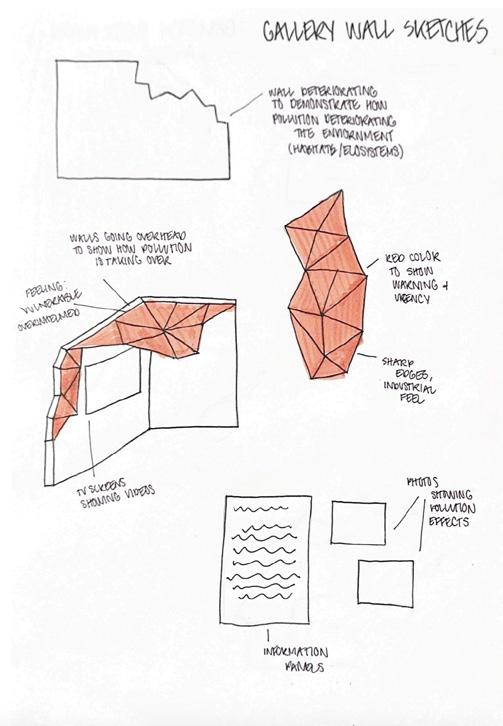 GALLERY WALL SKETCHES
WALL DETERIORATING
TO DEMONSTRATE HOW
POLLUTION DETERIORATING
THE ENVIORNMENT
(HABITATS/ECOSYSTEMS)
WALLS GOING OVERHEAD
TO SHOW HOW POLLUTION
IS TAKING OVER
FEELING:
VULNERABLE
OVERWHELMED
RED COLOR
TO SHOW
WARNING +
URGENCY
SHARP
EDGES,
INDUSTRIAL
FEEL
TV SCREENS
SHOWING VIDEOS
PHOTOS
SHOWING
POLLUTION
EFFECTS
INFORMATION
PANELS